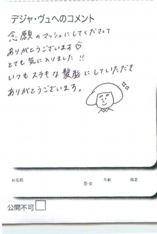 デジャ・ヴュへのコメント
念願のマッシュにしてくださって
ありがとうございます♡
とても気に入りました!!
いつもステキな髪型にしていただき
ありがとうございます。
お名前
性女
年齢
職業
公開不可□